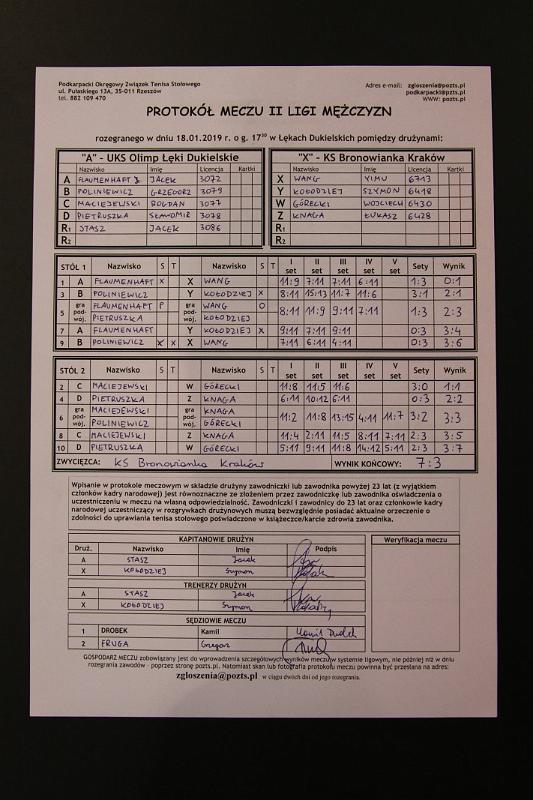 Podkarpacki Okręgowy Związek Tenisa Stołowego
ul. Pułaskiego 13A, 35-011 Rzeszów
tel. 882 109 470
Adres e-mail: zgloszenia@pozts.pl
podkarpacki@pozts.pl
WWW: pozts.pl
PROTOKÓŁ MECZU II LIGI MĘŻCZYZN
rozegranego w dniu 18.01.2019 r. o g. 17³⁰ w Łękach Dukielskich pomiędzy drużynami:
"A" - UKS Olimp Łęki Dukielskie
Nazwisko Imię Licencja Kartki
A FLAUMENHAFT JACEK 3072
B POLINIEWICZ GRZEGORZ 3079
C MACIEJEWSKI BOGDAN 3077
D PIETRUSZKA SŁAWOMIR 3078
R1 STASZ JACEK 3086
R2
"X" - KS Bronowianka Kraków
Nazwisko Imię Licencja Kartki
X WANG YIMU 6713
Y KOŁODZIEJ SZYMON 6418
W GÓRECKI WOJCIECH 6430
Z KNAGA ŁUKASZ 6428
R1
R2
STÓL 1 Nazwisko S T Nazwisko S T I set II set III set IV set V set Sety Wynik
1 A FLAUMENHAFT X X WANG 11:9 7:11 7:11 6:11 1:3 0:1
3 B POLINIEWICZ Y KOŁODZIEJ X 8:11 15:13 11:7 11:6 3:1 2:1
5 gra podwój. FLAUMENHAFT P gra podwój. WANG O 8:11 11:9 9:11 7:11 1:3 2:3
PIETRUSZKA KOŁODZIEJ
7 A FLAUMENHAFT Y KOŁODZIEJ X 9:11 7:11 9:11 0:3 3:4
9 B POLINIEWICZ X X X WANG 7:11 6:11 4:11 0:3 3:6
STÓL 2 Nazwisko S T Nazwisko S T I set II set III set IV set V set Sety Wynik
2 C MACIEJEWSKI W GÓRECKI 11:8 11:5 11:6 3:0 1:1
4 D PIETRUSZKA Z KNAGA 6:11 10:12 6:11 0:3 2:2
6 gra podwój. MACIEJEWSKI gra podwój. KNAGA 11:2 11:8 13:15 4:11 11:7 3:2 3:3
POLINIEWICZ GÓRECKI
8 C MACIEJEWSKI Z KNAGA 11:4 2:11 11:5 8:11 7:11 2:3 3:5
10 D PIETRUSZKA W GÓRECKI 5:11 9:11 11:8 14:12 5:11 2:3 3:7
ZWYCIĘZCA: KS Bronowianka Kraków WYNIK KOŃCOWY: 7:3
Wpisanie w protokole meczowym w składzie drużyny zawodniczki lub zawodnika powyżej 23 lat (z wyjątkiem
członków kadry narodowej) jest równoznaczne ze złożeniem przez zawodniczkę lub zawodnika oświadczenia o
uczestniczeniu w meczu na własną odpowiedzialność. Zawodniczki i zawodnicy do 23 lat oraz członkowie kadry
narodowej uczestniczący w rozgrywkach drużynowych muszą bezwzględnie posiadać aktualne orzeczenie o
zdolności do uprawiania tenisa stołowego poświadczone w książeczce/karcie zdrowia zawodnika.
KAPITANOWIE DRUŻYN
Druż. Nazwisko Imię Podpis
A STASZ Jacek
X KOŁODZIEJ Szymon
TRENERZY DRUŻYN
A STASZ Jacek
X KOŁODZIEJ Szymon
SĘDZIOWIE MECZU
1 DROBEK Kamil
2 FRUGA Grzegorz
Weryfikacja meczu
GOSPODARZ MECZU zobowiązany jest do wprowadzenia szczegółowych wyników meczu w systemie ligowym, nie później niż w dniu
rozegrania zawodów - poprzez stronę pozts.pl. Natomiast skan lub fotografia protokołu meczu powinna być przesłana na adres:
zgloszenia@pozts.pl w ciągu dwóch dni od jego rozegrania.